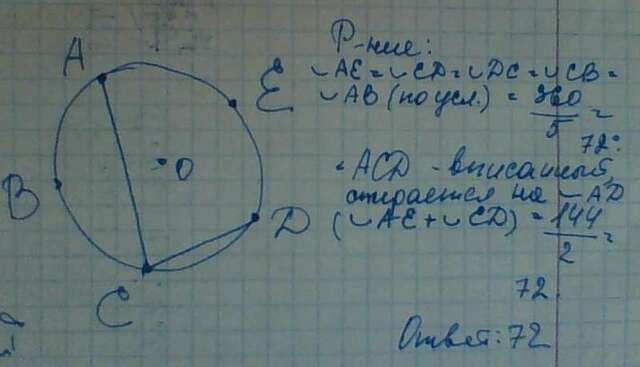 A
E
B
O
D
C
Р-ние:
◡AE = ◡CD = ◡DC = ◡CB =
◡AB (по усл.) = 360/5 =
72°
∠ACD - вписанный,
опирается на ◡AD
(◡AE + ◡ED) = 144/2 =
72.
Ответ: 72